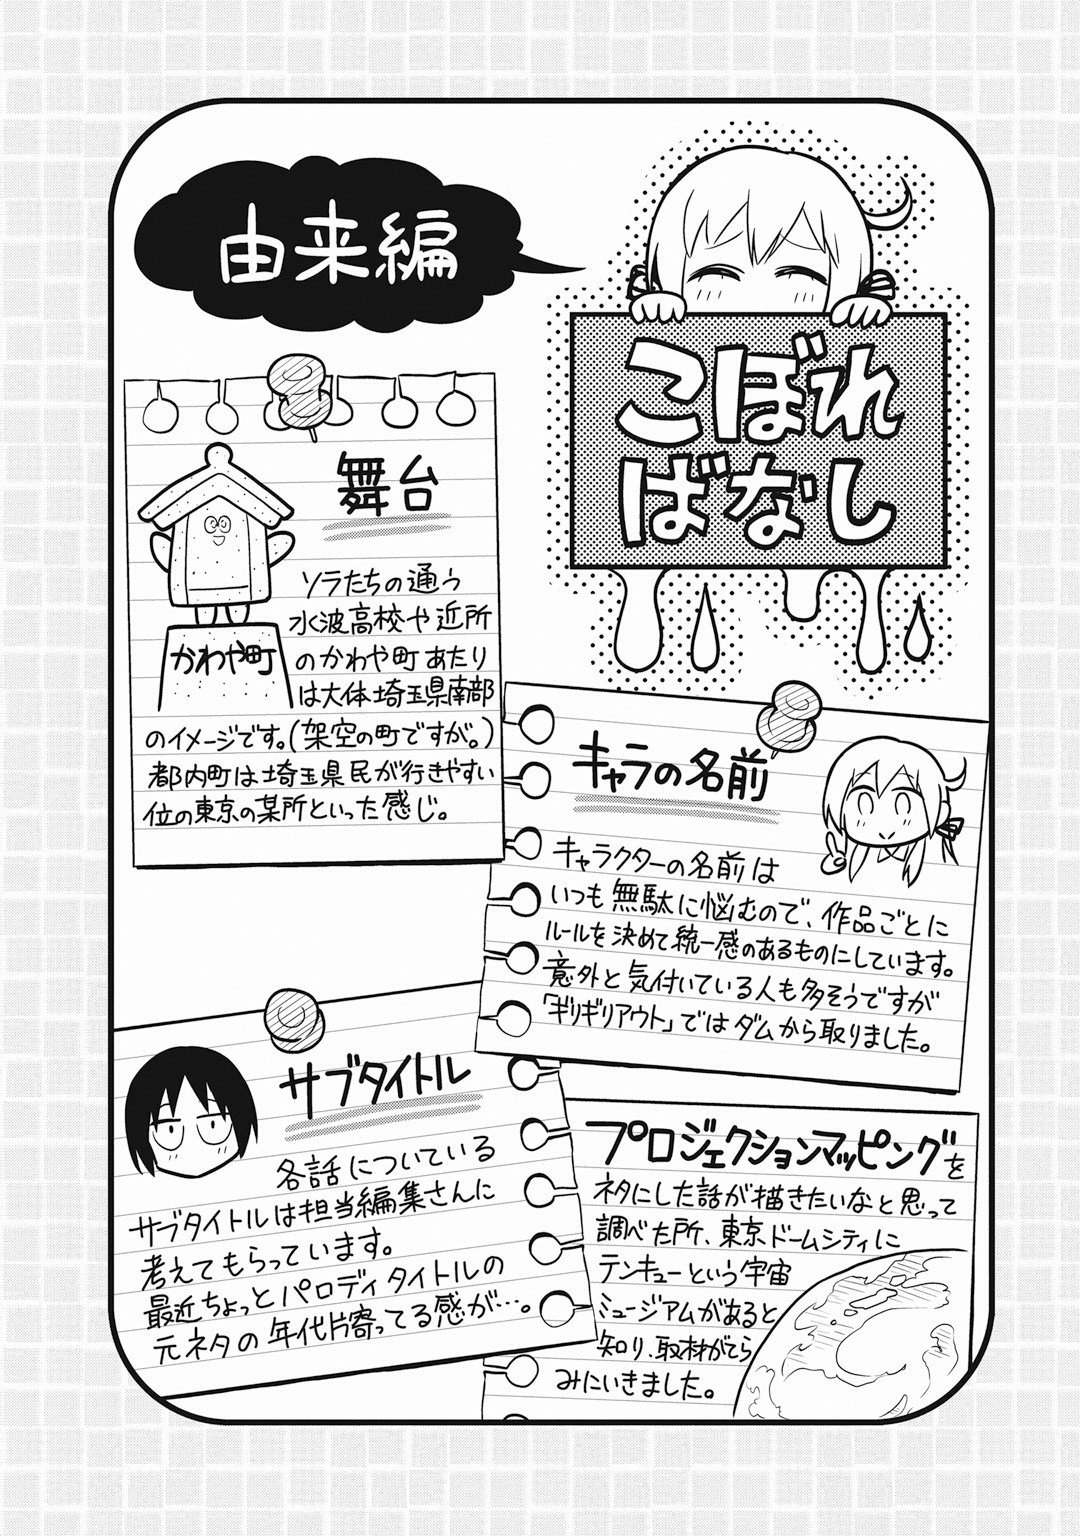 由来編
こぼれ
ばなし
舞台
かわや町
ソラたちの通う
水波高校や近所
のかわや町あたり
は大体埼玉県南部
のイメージです。(架空の町ですが。)
都内町は埼玉県民が行きやすい
位の東京の某所といった感じ。
キャラの名前
キャラクターの名前は
いつも無駄に悩むので、作品ごとに
ルールを決めて統一感のあるものにしています。
意外と気付いている人も多そうですが
「ギリギリアウト」ではダムから取りました。
サブタイトル
各話についている
サブタイトルは担当編集さんに
考えてもらっています。
最近ちょっとパロディタイトルの
元ネタの年代片寄ってる感が…。
プロジェクションマッピングを
ネタにした話が描きたいなと思って
調べた所、東京ドームシティに
テンキューという宇宙
ミュージアムがあると
知り、取材がてら
みにいきました。